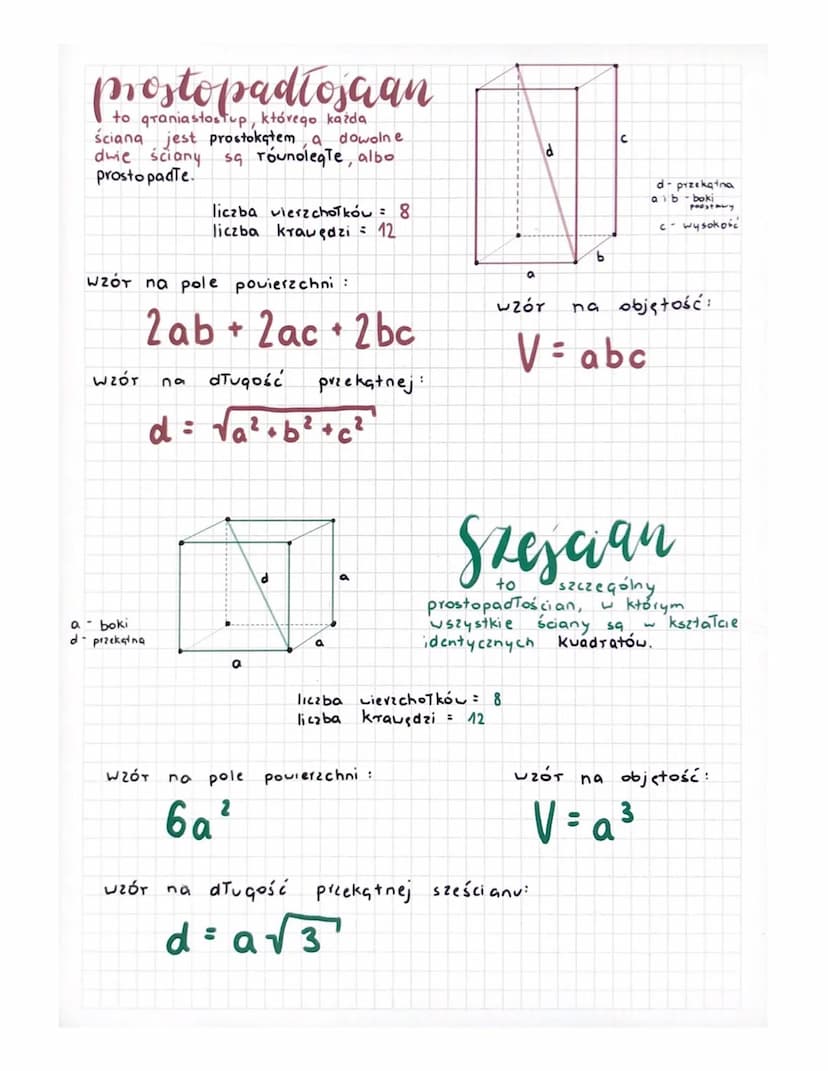 prostopadłościan
to graniastosłup, którego każda
ścianą jest prostokątem, a dowolne
dwie ściany są równoległe, albo
prostopadłe.
liczba wierzchołków = 8
liczba krawędzi = 12
d
c
a
b
d - przekątna
a i b - boki
podstawy
c - wysokość
wzór na pole powierzchni:
2ab + 2ac + 2bc
wzór na objętość:
V = abc
wzór na długość przekątnej:
d = √a² + b² + c²
d
a
a
a
a - boki
d - przekątna
Sześcian
to szczególny
prostopadłościan, w którym
wszystkie ściany są w kształcie
identycznych kwadratów.
liczba wierzchołków = 8
liczba krawędzi = 12
wzór na pole powierzchni:
6a²
wzór na objętość:
V = a³
wzór na długość przekątnej sześcianu:
d = a√3